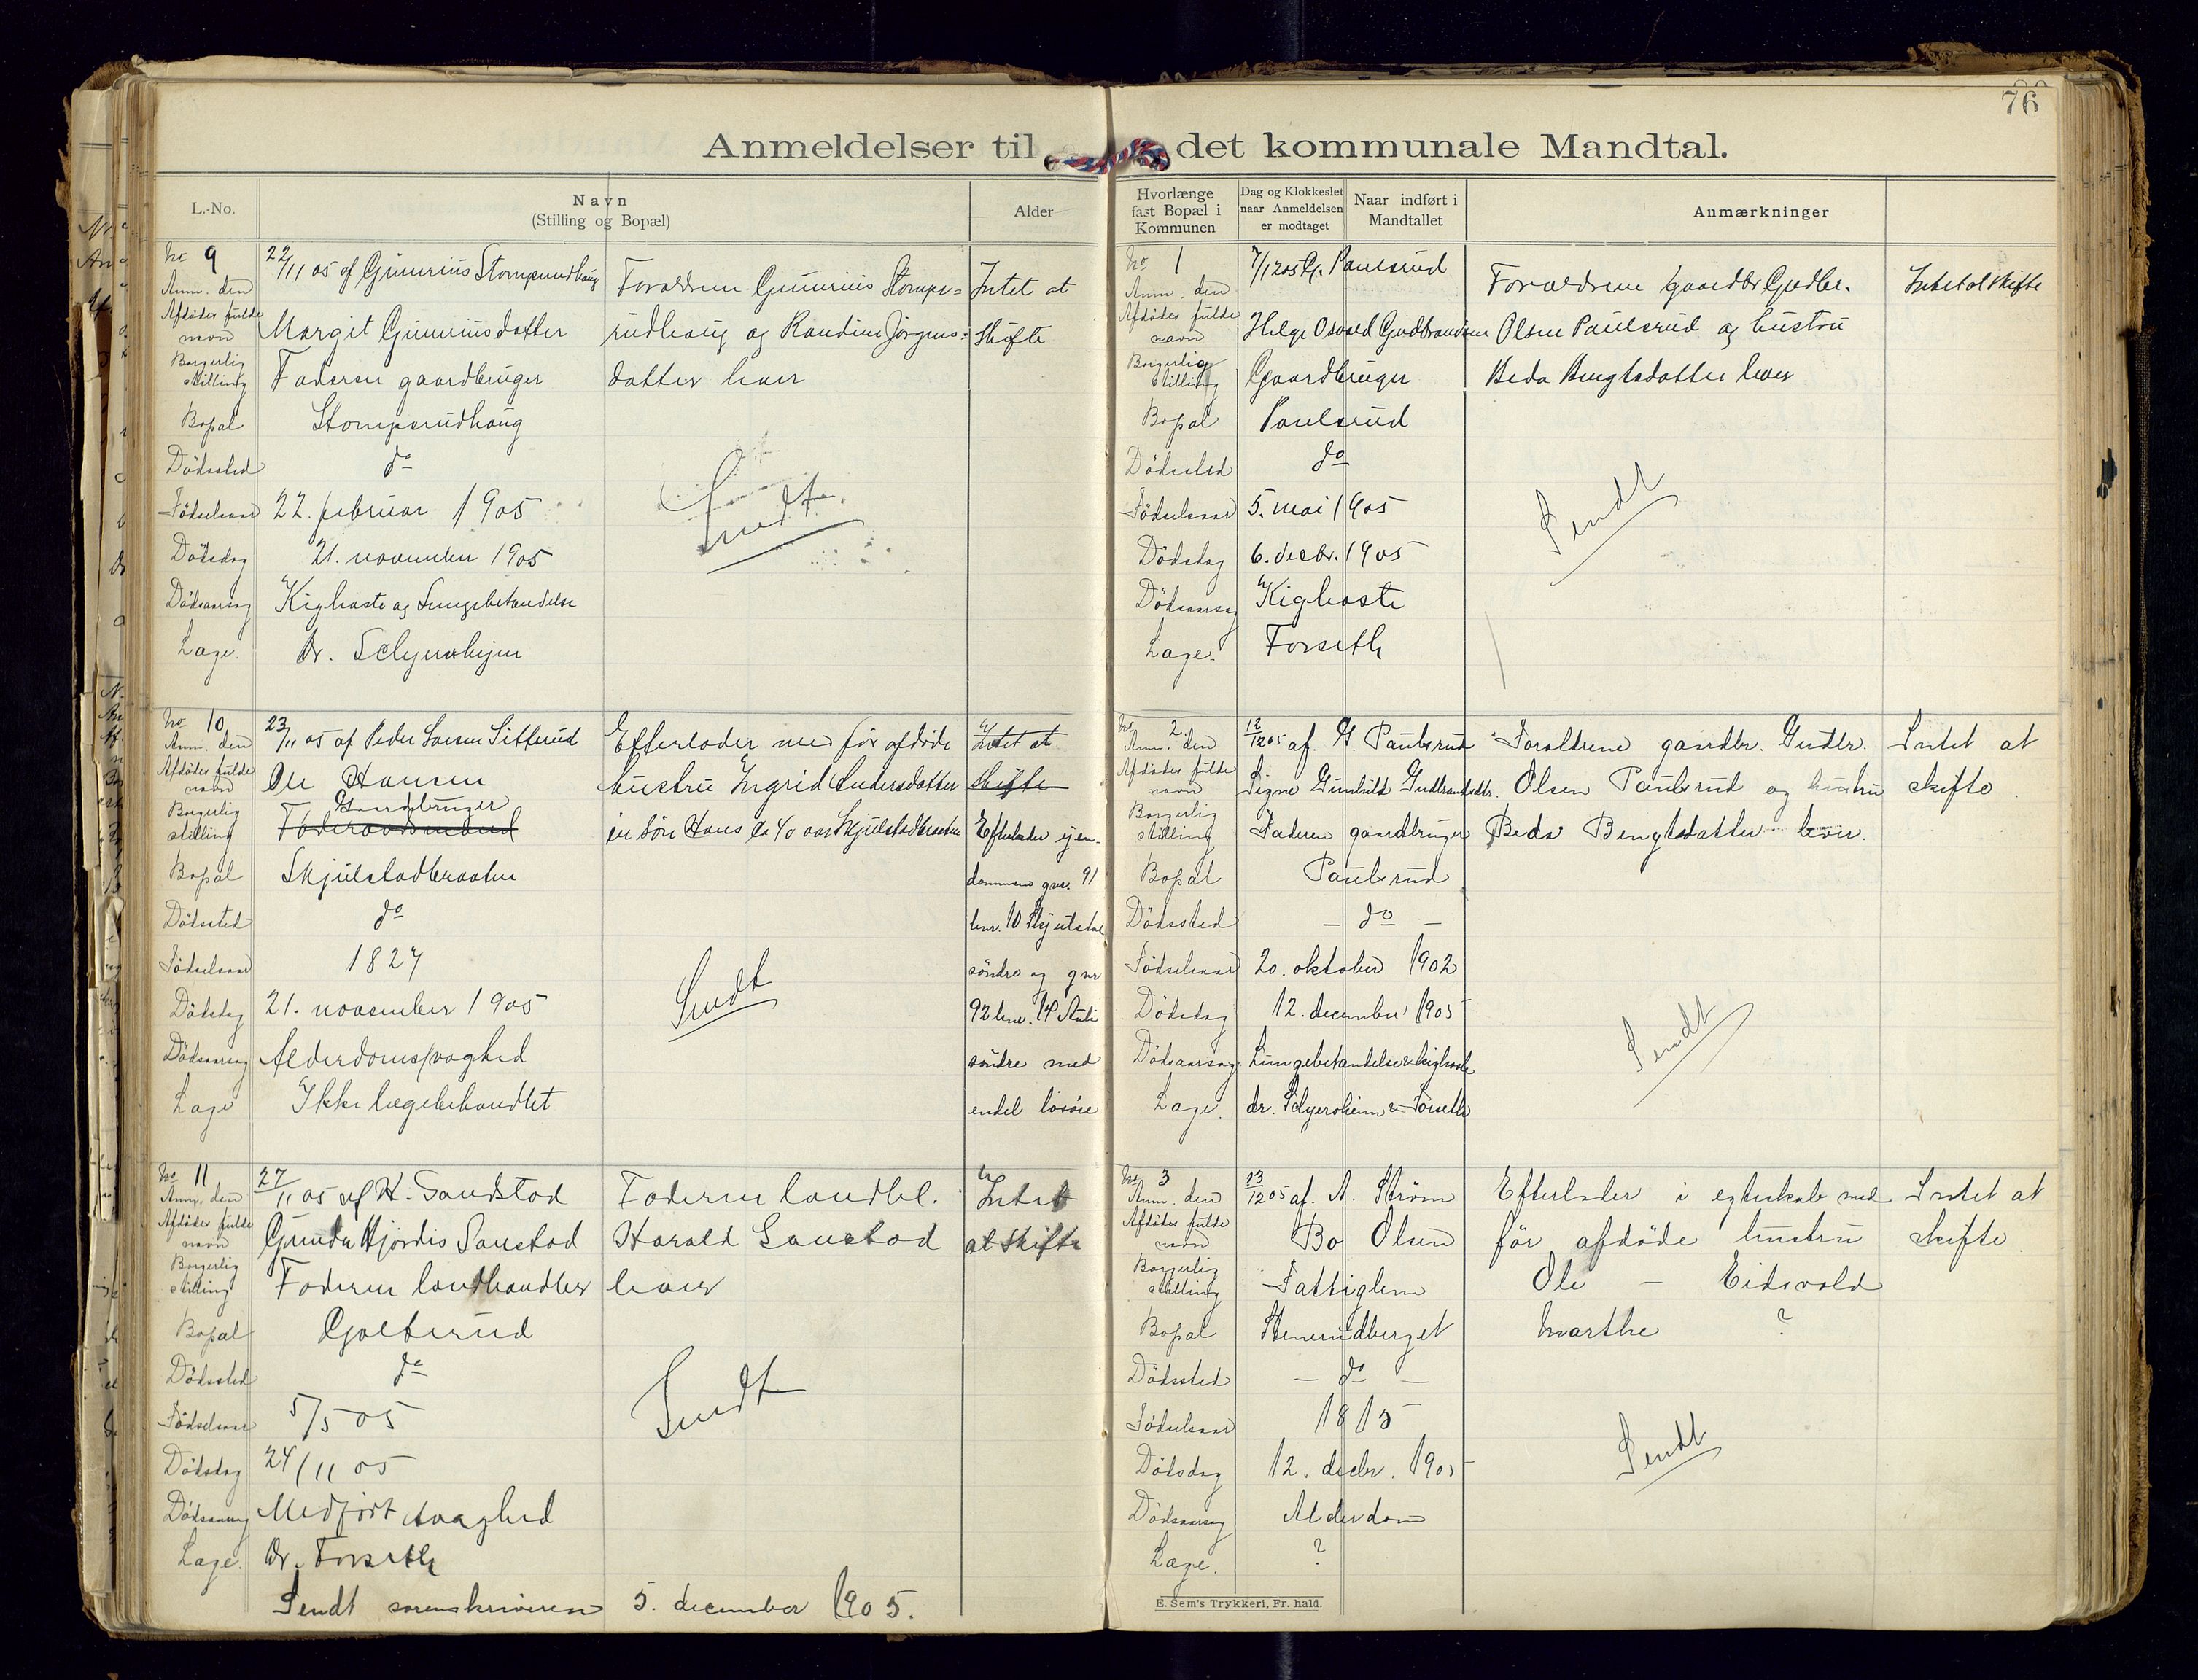 76
Anmeldelser til det kommunale Mandtal.
L.-No.
Navn
(Stilling og Bopæl)
Alder
No 9
22/11 05 af Gunerius Stomperudhaug
Forældrene Gunerius Stompe-
Intet at
Anm. den
Afdødes fulde navn
Margit Guneriusdatter
rudhaug og Randine Jørgens-
Skifte
Borgerlig stilling
Faderen gaardbruger
datter lever
Bopæl
Stomperudhaug
Dödssted
do
Födselsaar
22. februar 1905
Sendt.
Dödsdag
21. november 1905
Dödsaarsag
Kighoste og Lungebetændelse
Læge.
Dr. Selyersheim
No 10
23/11 05 af Peder Larsen Sitterud
Efterlader med før afdøde
Intet at
Anm. den
Afdødes fulde navn
Ole Hansen
hustru Ingrid Andersdatter
skifte
Gaardbruger
Borgerlig stilling
Föderaadsmand
en sön Hans ca 40 aar Skjulstadbraaten
Efterlader ejen-
Bopæl
Skjulstadbraaten
dommene gnr. 91
Dödssted
do
bnr. 10 Skjulstad
Födselsaar
1827
söndre og gnr
Sendt
Dödsdag
21. november 1905
92 bnr. 14 Auli
Dödsaarsag
Alderdomssvaghed
söndre med
Læge
Ikke lægebehandlet
endel lösöre
No 11
27/11 05 af H. Sandstad
Faderen landhl.
Intet
Anm. den
Afdødes fulde navn
Gunda Hjördis Sanstad
Harald Sanstad
at skifte
Borgerlig stilling
Faderen landhandler
lever
Bopæl
Dödssted
do
Födselsaar
5/5 05
Sendt
Dödsdag
24/11 05
Dödsaarsag
Medfödt svaghed
Læge.
Dr. Forseth
Sendt sorenskriveren 5. december 1905.
Hvorlænge fast Bopæl i Kommunen
Dag og Klokkeslet naar Anmeldelsen er modtaget
Naar indført i Mandtallet
Anmærkninger
No 1
7/12 05 G. Paulsrud
Forældrene gaardbr Gudbr.
Intet at skifte
Anm. den
Afdødes fulde navn
Helge Osvald Gudbrandsen
Olsen Paulsrud og hustru
Borgerlig stilling
Gaardbruger
Beda Bengtsdatter lever
Bopæl
Paulsrud
Dödssted
do
Födselsaar
5. mai 1905
Sendt
Dödsdag
6. decbr. 1905
Dödsaarsag
Kighoste
Læge.
Forseth
No 2.
12/12 05 af. G. Paulsrud
Forældrene gaardbr. Gudbr.
Intet at
Anm. den
Afdødes fulde navn
Signe Gunhild Gudbrandsdtr.
Olsen Paulsrud og hustru
skifte
Borgerlig stilling
Faderen gaardbruger
Beda Bengtsdatter lever.
Bopæl
Paulsrud
Dödssted
— do —
Födselsaar
20. oktober 1902
Dödsdag
12. december 1905
Sendt
Dödsaarsag
Lungebetændelse & kighoste
Læge.
dr. Selyersheim & Forseth
No 3
13/12 05 af. A. Ström
Efterlader i egteskab med
Intet at
Anm. den
Afdødes fulde navn
Bo Olsen
för afdöde hustru
skifte.
Borgerlig stilling
Fattiglem
Ole — Eidsvold
Bopæl
Stenerudberget
Marthe ?
Dödssted
— do —
Födselsaar
1815
Sendt
Dödsdag
12. decbr. 1905
Dödsaarsag
Alderdom
Læge.
?
E. Sem's Trykkeri, Fr. hald.